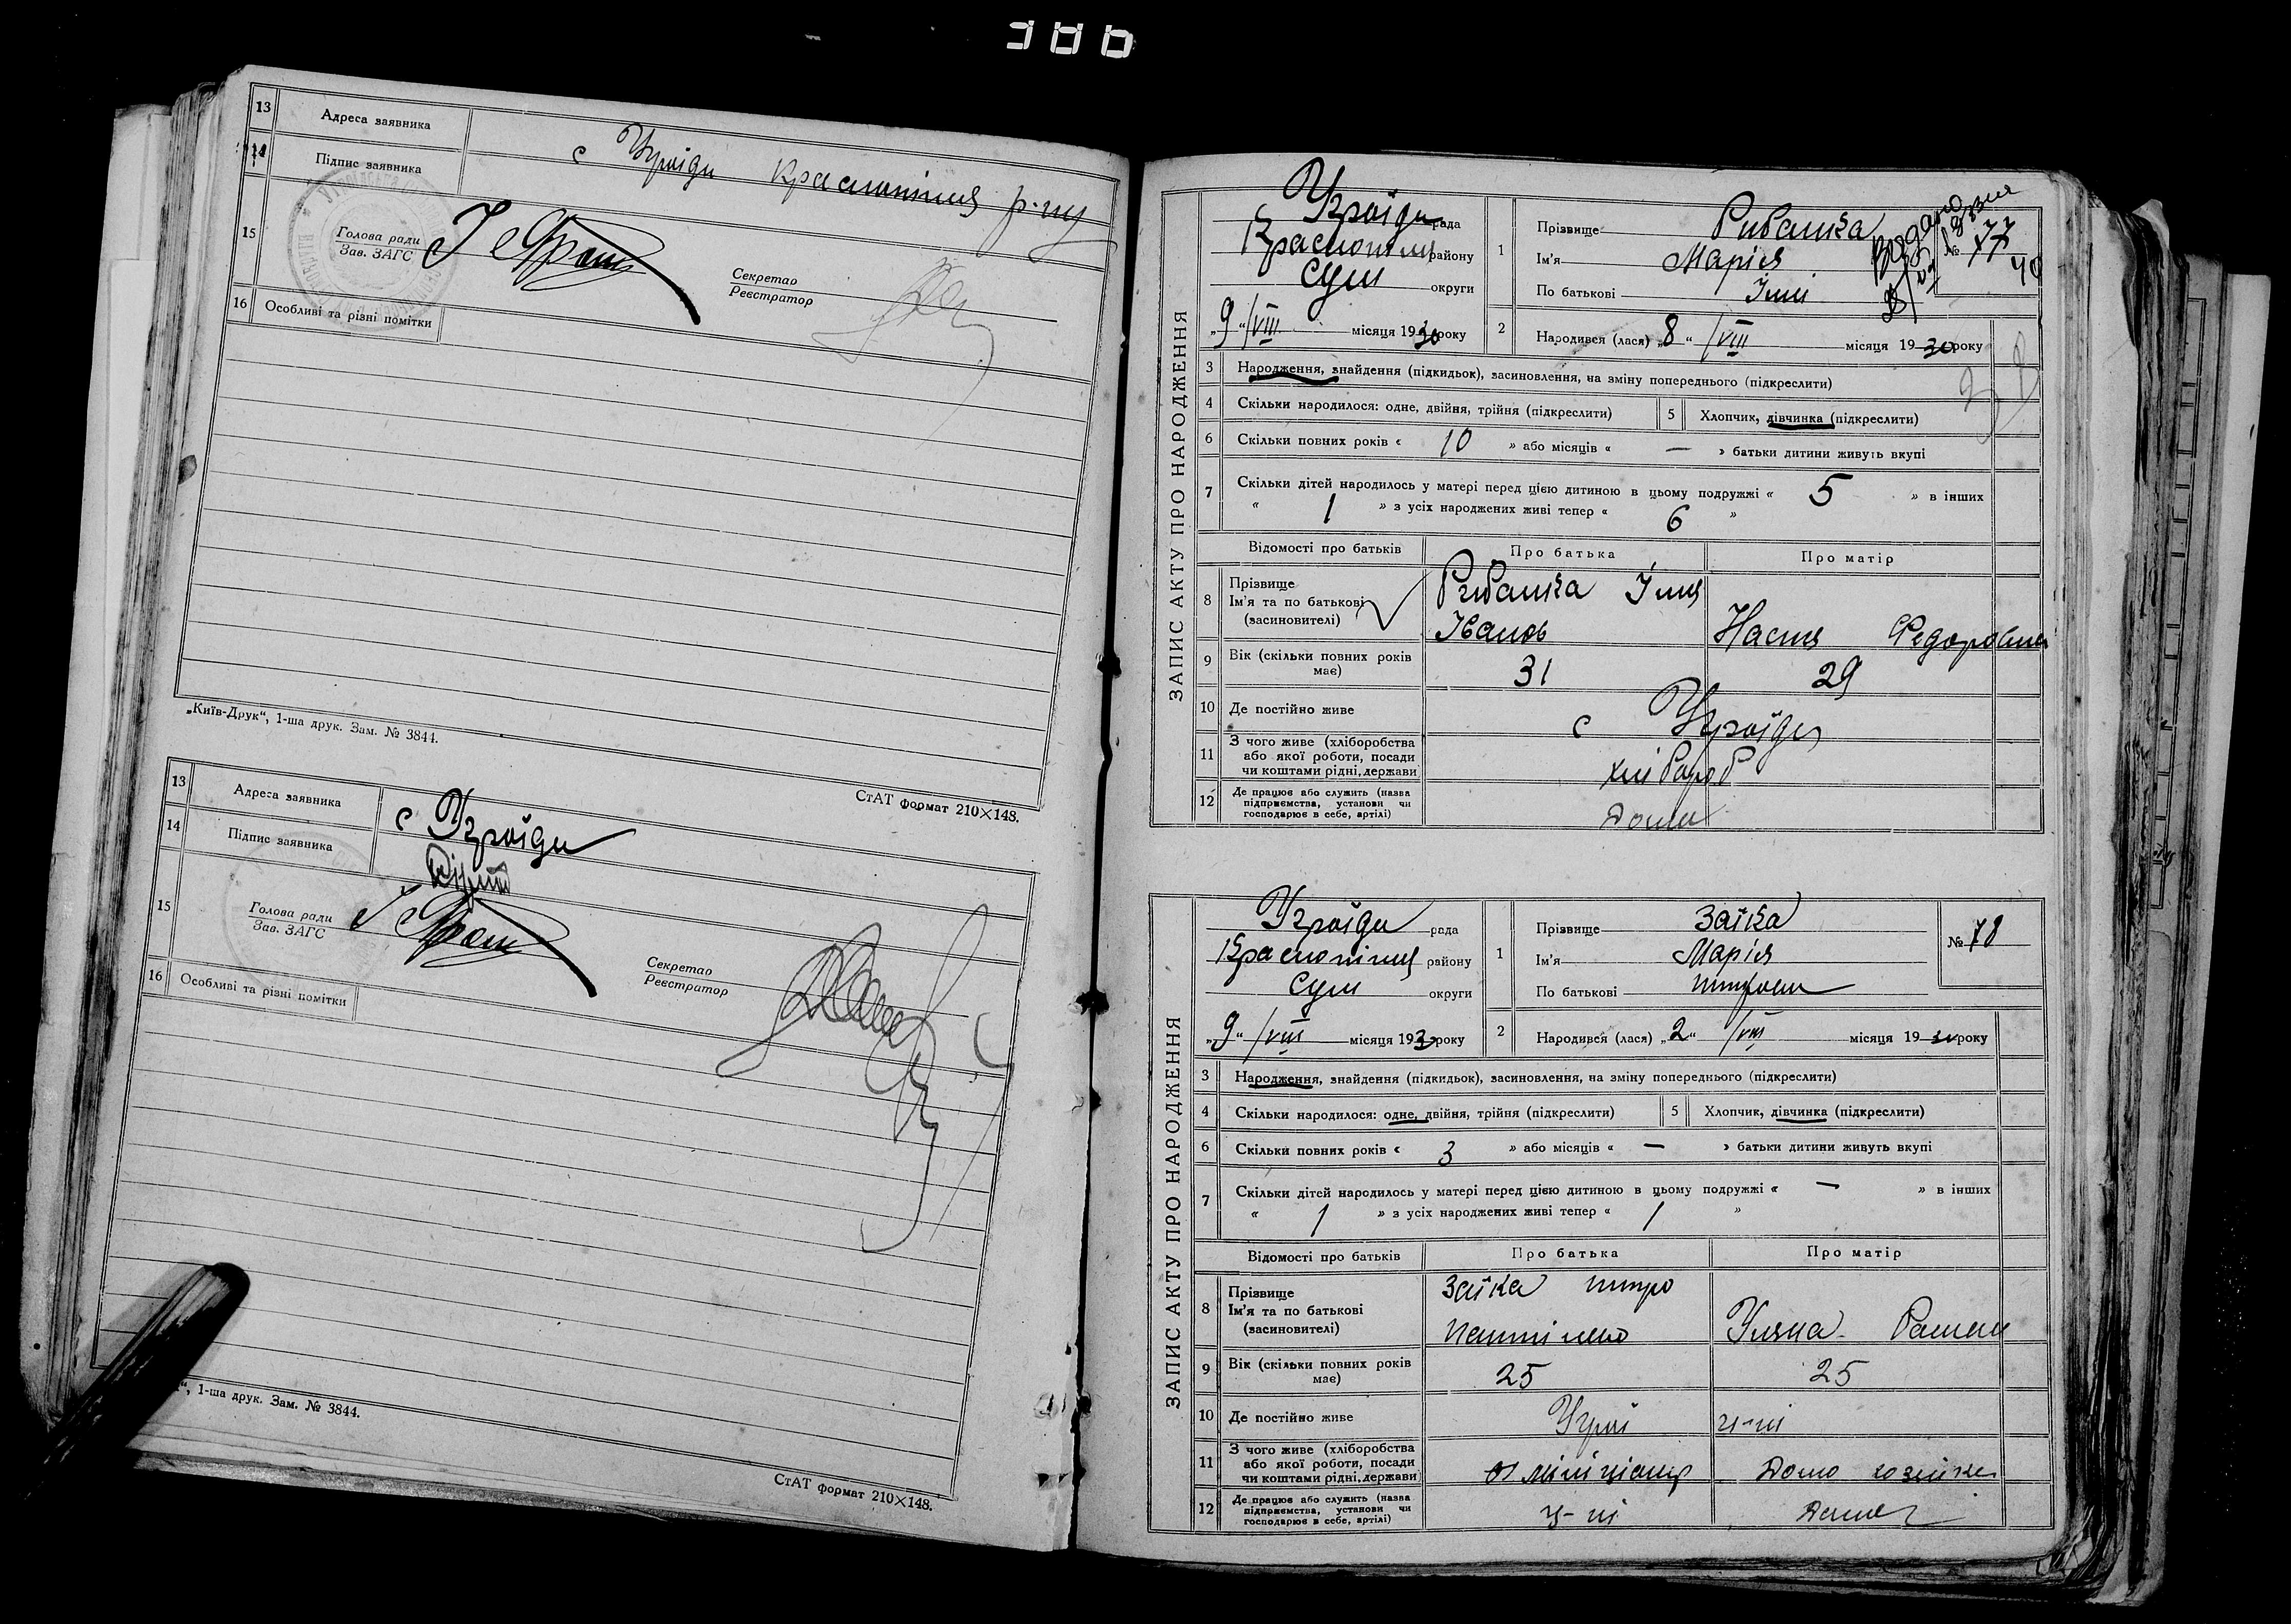 13 Адреса заявника с Угроїди Краснопілля р-ну
14 Підпис заявника
15 Голова ради
Зав. ЗАГС
Секретар
Реєстратор
16 Особливі та різні помітки
„Київ-Друк“, 1-ша друк. Зам. № 3844.
СтАТ формат 210×148.
13 Адреса заявника с Угроїди
14 Підпис заявника
15 Голова ради
Зав. ЗАГС
Секретар
Реєстратор
16 Особливі та різні помітки
“, 1-ша друк. Зам. № 3844.
СтАТ формат 210×148.
ЗАПИС АКТУ ПРО НАРОДЖЕННЯ
Угроїди рада
Краснопілля району
Сум округи
„9“ /VIII місяця 1930 року
1 Прізвище Рибалка
Ім'я Марія
По батькові Ілл
№ 77
2 Народився (лася) „8“ /VIII місяця 1930 року
3 Народження, знайдення (підкидьок), засиновлення, на зміну попереднього (підкреслити)
4 Скільки народилося: одне, двійня, трійня (підкреслити) 5 Хлопчик, дівчинка (підкреслити)
6 Скільки повних років « 10 » або місяців « — » батьки дитини живуть вкупі
7 Скільки дітей народилось у матері перед цією дитиною в цьому подружжі « 5 » в інших
« 1 » з усіх народжених живі тепер « 6 »
Відомості про батьків Про батька Про матір
8 Прізвище
Ім'я та по батькові
(засиновителі)
Рибалка Ілля
Іванов Настя Федоровна
9 Вік (скільки повних років має) 31 29
10 Де постійно живе с Угроїди
11 З чого живе (хліборобства
або якої роботи, посади
чи коштами рідні, держави хлібороб
12 Де працює або служить (назва
підприємства, установи чи
господарює в себе, артілі) Дома
ЗАПИС АКТУ ПРО НАРОДЖЕННЯ
Угроїди рада
Краснопілля району
Сум округи
„9“ /VIII місяця 1930 року
1 Прізвище Заїка
Ім'я Марія
По батькові
№ 78
2 Народився (лася) „2“ /VIII місяця 1930 року
3 Народження, знайдення (підкидьок), засиновлення, на зміну попереднього (підкреслити)
4 Скільки народилося: одне, двійня, трійня (підкреслити) 5 Хлопчик, дівчинка (підкреслити)
6 Скільки повних років « 3 » або місяців « — » батьки дитини живуть вкупі
7 Скільки дітей народилось у матері перед цією дитиною в цьому подружжі « — » в інших
« 1 » з усіх народжених живі тепер « 1 »
Відомості про батьків Про батька Про матір
8 Прізвище
Ім'я та по батькові
(засиновителі)
Заїка
Уляна
9 Вік (скільки повних років має) 25 25
10 Де постійно живе Угрої
11 З чого живе (хліборобства
або якої роботи, посади
чи коштами рідні, держави міліціонер Домо хозяйка
12 Де працює або служить (назва
підприємства, установи чи
господарює в себе, артілі) Дома